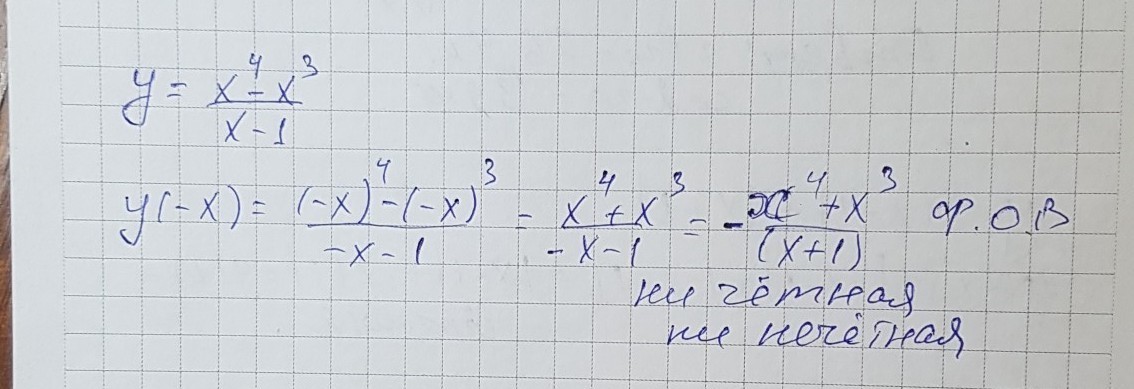 y = (x⁴ - x³)/(x - 1)
y(-x) = ((-x)⁴ - (-x)³)/(-x - 1) = (x⁴ + x³)/(-x - 1) = -(x⁴ + x³)/(x + 1) ф. О.В
ни чётная
ни нечётная